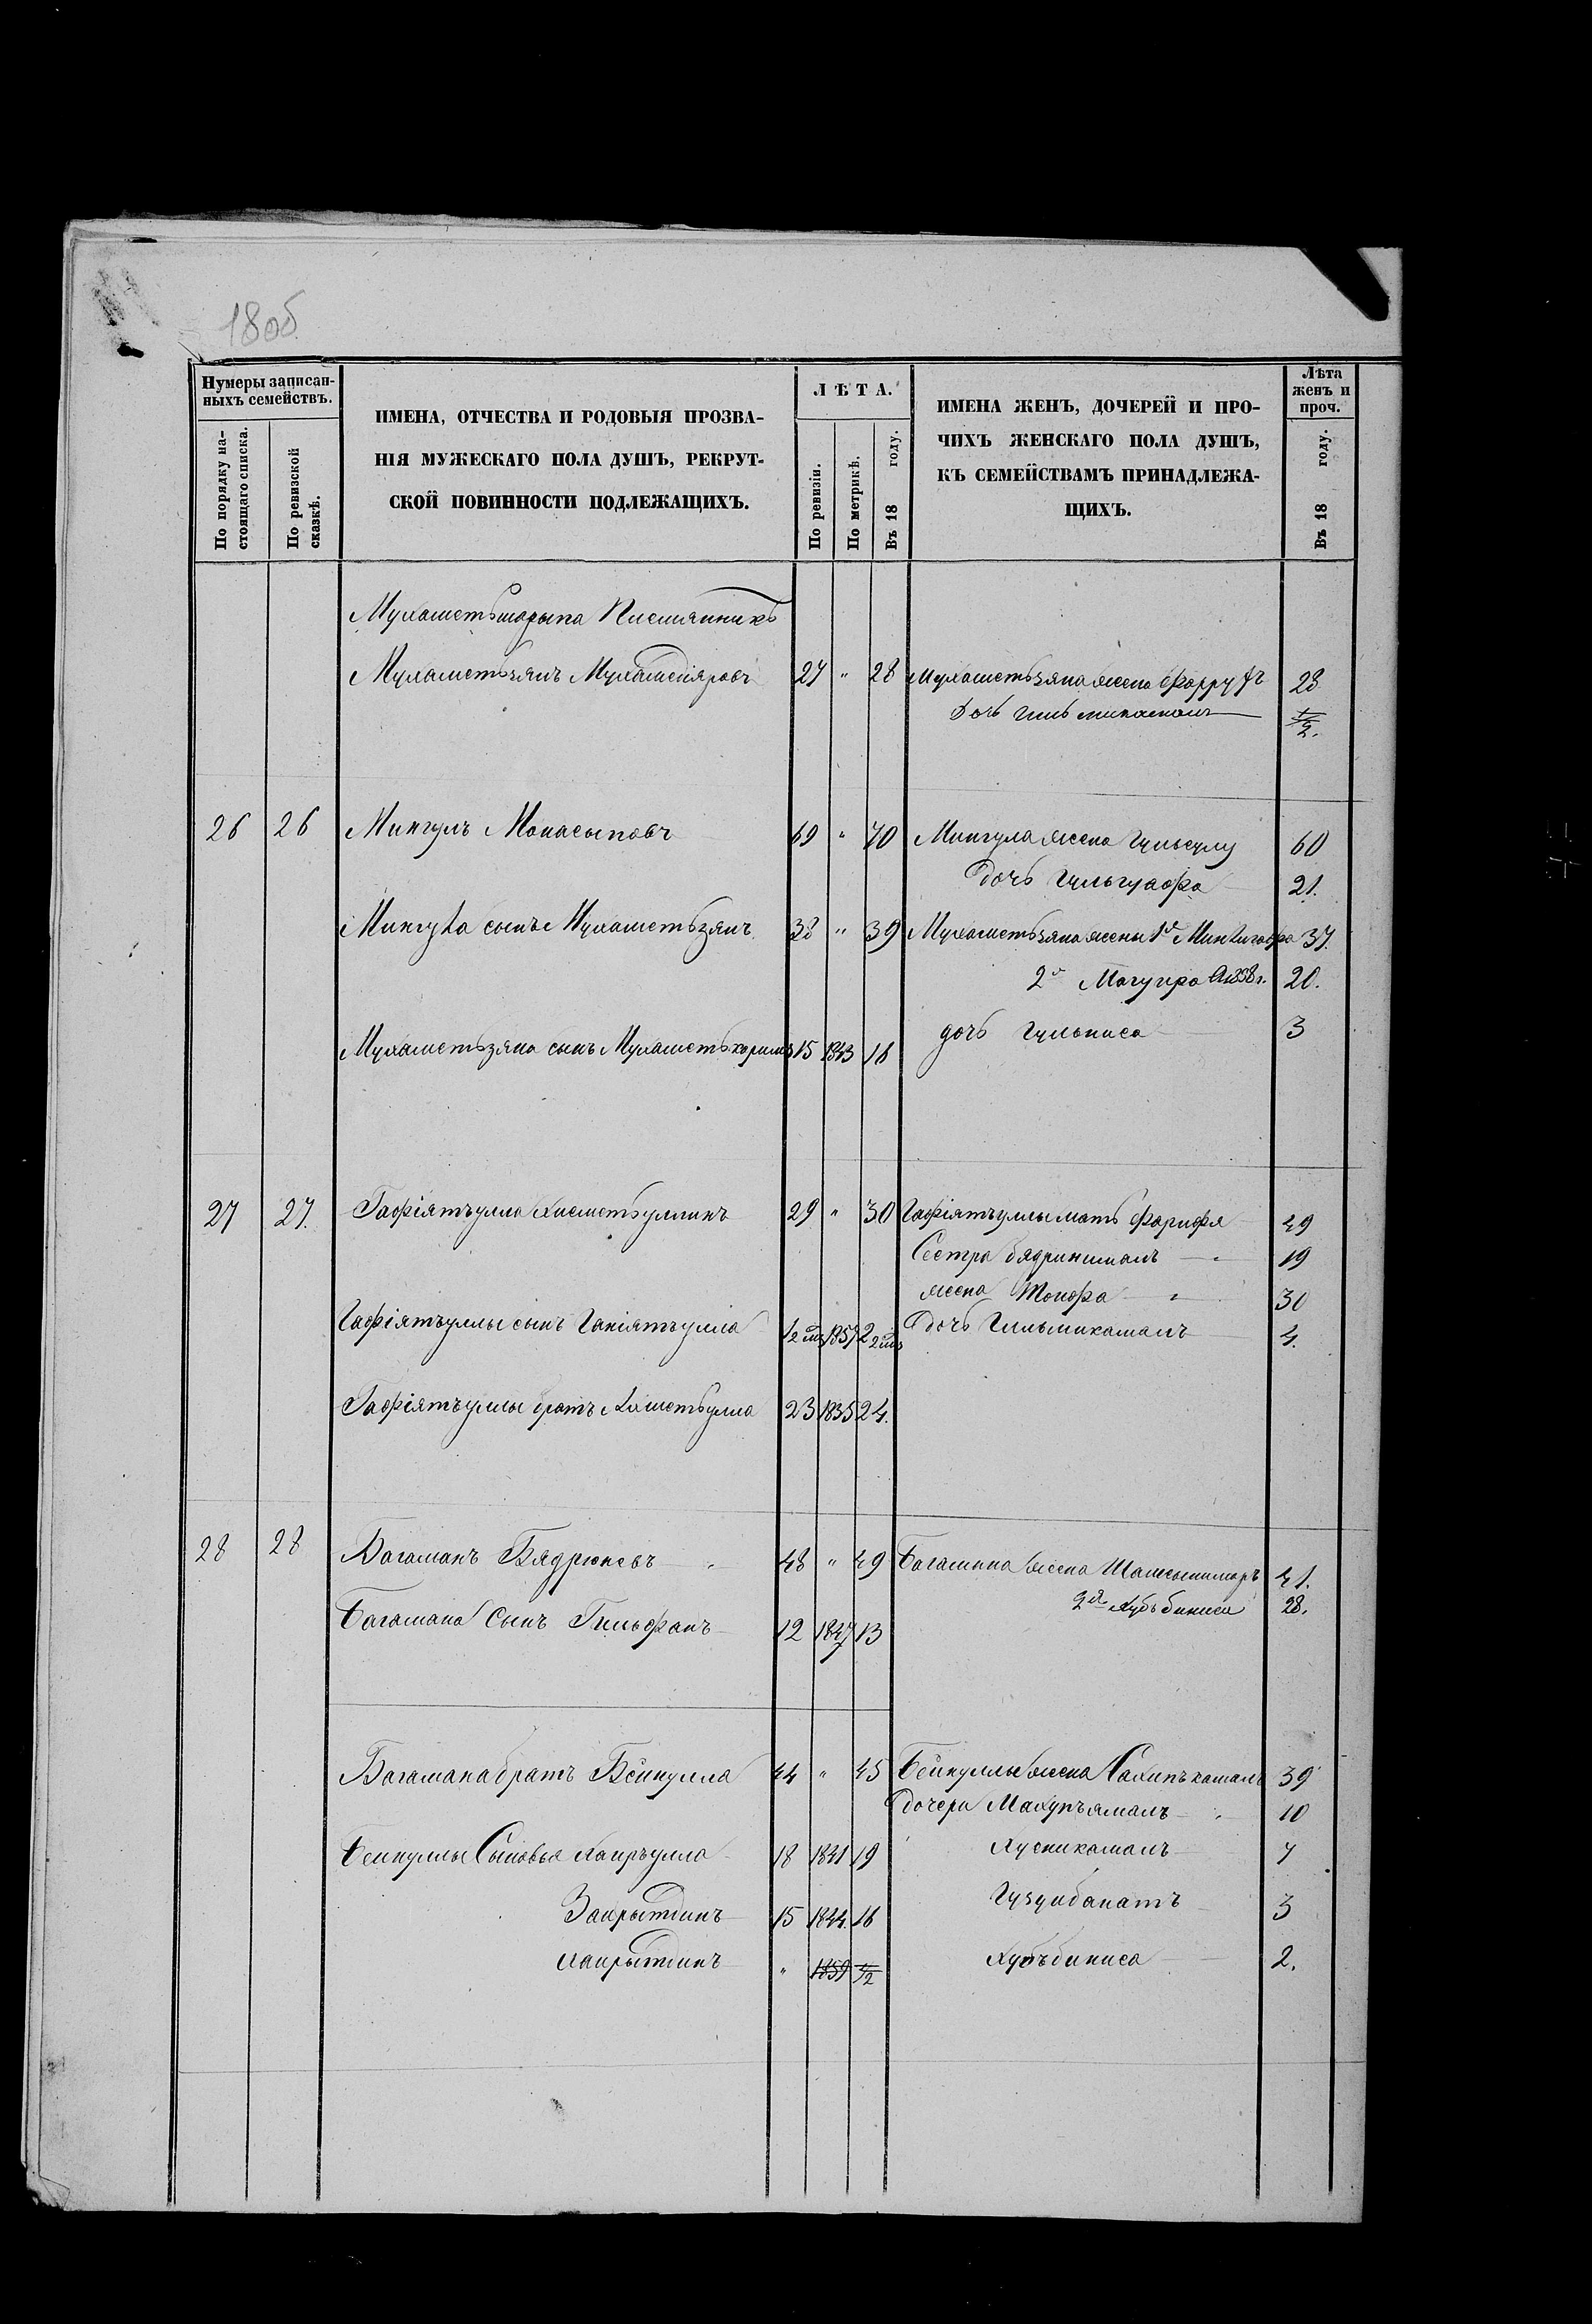 18об
Нумеры записан-
ныхъ семействъ.
По порядку на-
стоящаго списка.
По ревизской
сказкѣ.
ИМЕНА, ОТЧЕСТВА И РОДОВЫЯ ПРОЗВА-
НІЯ МУЖЕСКАГО ПОЛА ДУШЪ, РЕКРУТ-
СКОЙ ПОВИННОСТИ ПОДЛЕЖАЩИХЪ.
ЛѢТА.
По ревизіи.
По метрикѣ.
Въ 18 году.
ИМЕНА ЖЕНЪ, ДОЧЕРЕЙ И ПРО-
ЧИХЪ ЖЕНСКАГО ПОЛА ДУШЪ,
КЪ СЕМЕЙСТВАМЪ ПРИНАДЛЕЖА-
ЩИХЪ.
Лѣта
женъ и
проч.
Въ 18 году.
Мухаметьшарыпа Племянникъ
Мухаметьзянъ Мухамедіяровъ 27 " 28 Мухаметьзяна жена 28
дочь 1/2.
26 26 Мингулъ Монасыповъ 69 " 70 Мингула жена Гульсулу 60
дочь Гульгуафра 21.
Мингула сынъ Мухаметьзянъ 38 " 39 Мухаметьзяна жены 1я 37.
2я Магупра 20.
Мухаметьзяна сынъ Мухаметькаримъ 15 1843 16 дочь Гульниса 3
27 27. Гафіятъулла Хисметьуллинъ 29 " 30 Гафіятъуллы мать Фарифя 49
Сестра Бядринималъ " 19
жена " 30
Гафіятъуллы сынъ Ганіятъулла 1857 дочь Гильмикамалъ 4.
Гафіятъуллы братъ Ахметьулла 23 1835 24.
28 28 Багаманъ Бядрюковъ " 48 " 49 Багамана жена 41.
2я Хубъбиниса 28.
Багамана Сынъ Гильфанъ 12 1847 13
Багамана братъ Бейкулла 44 " 45 Бейкуллы жена Сахипъкамалъ 39
дочери Махупъямалъ " 10
Бейкуллы Сыновья Хаиръулла 18 1841 19 Хусникамалъ 7
Заирытдинъ 15 1844. 16 Гузунбанатъ 3
Хаирытдинъ " 1859 1/2 Хубъбиниса 2.